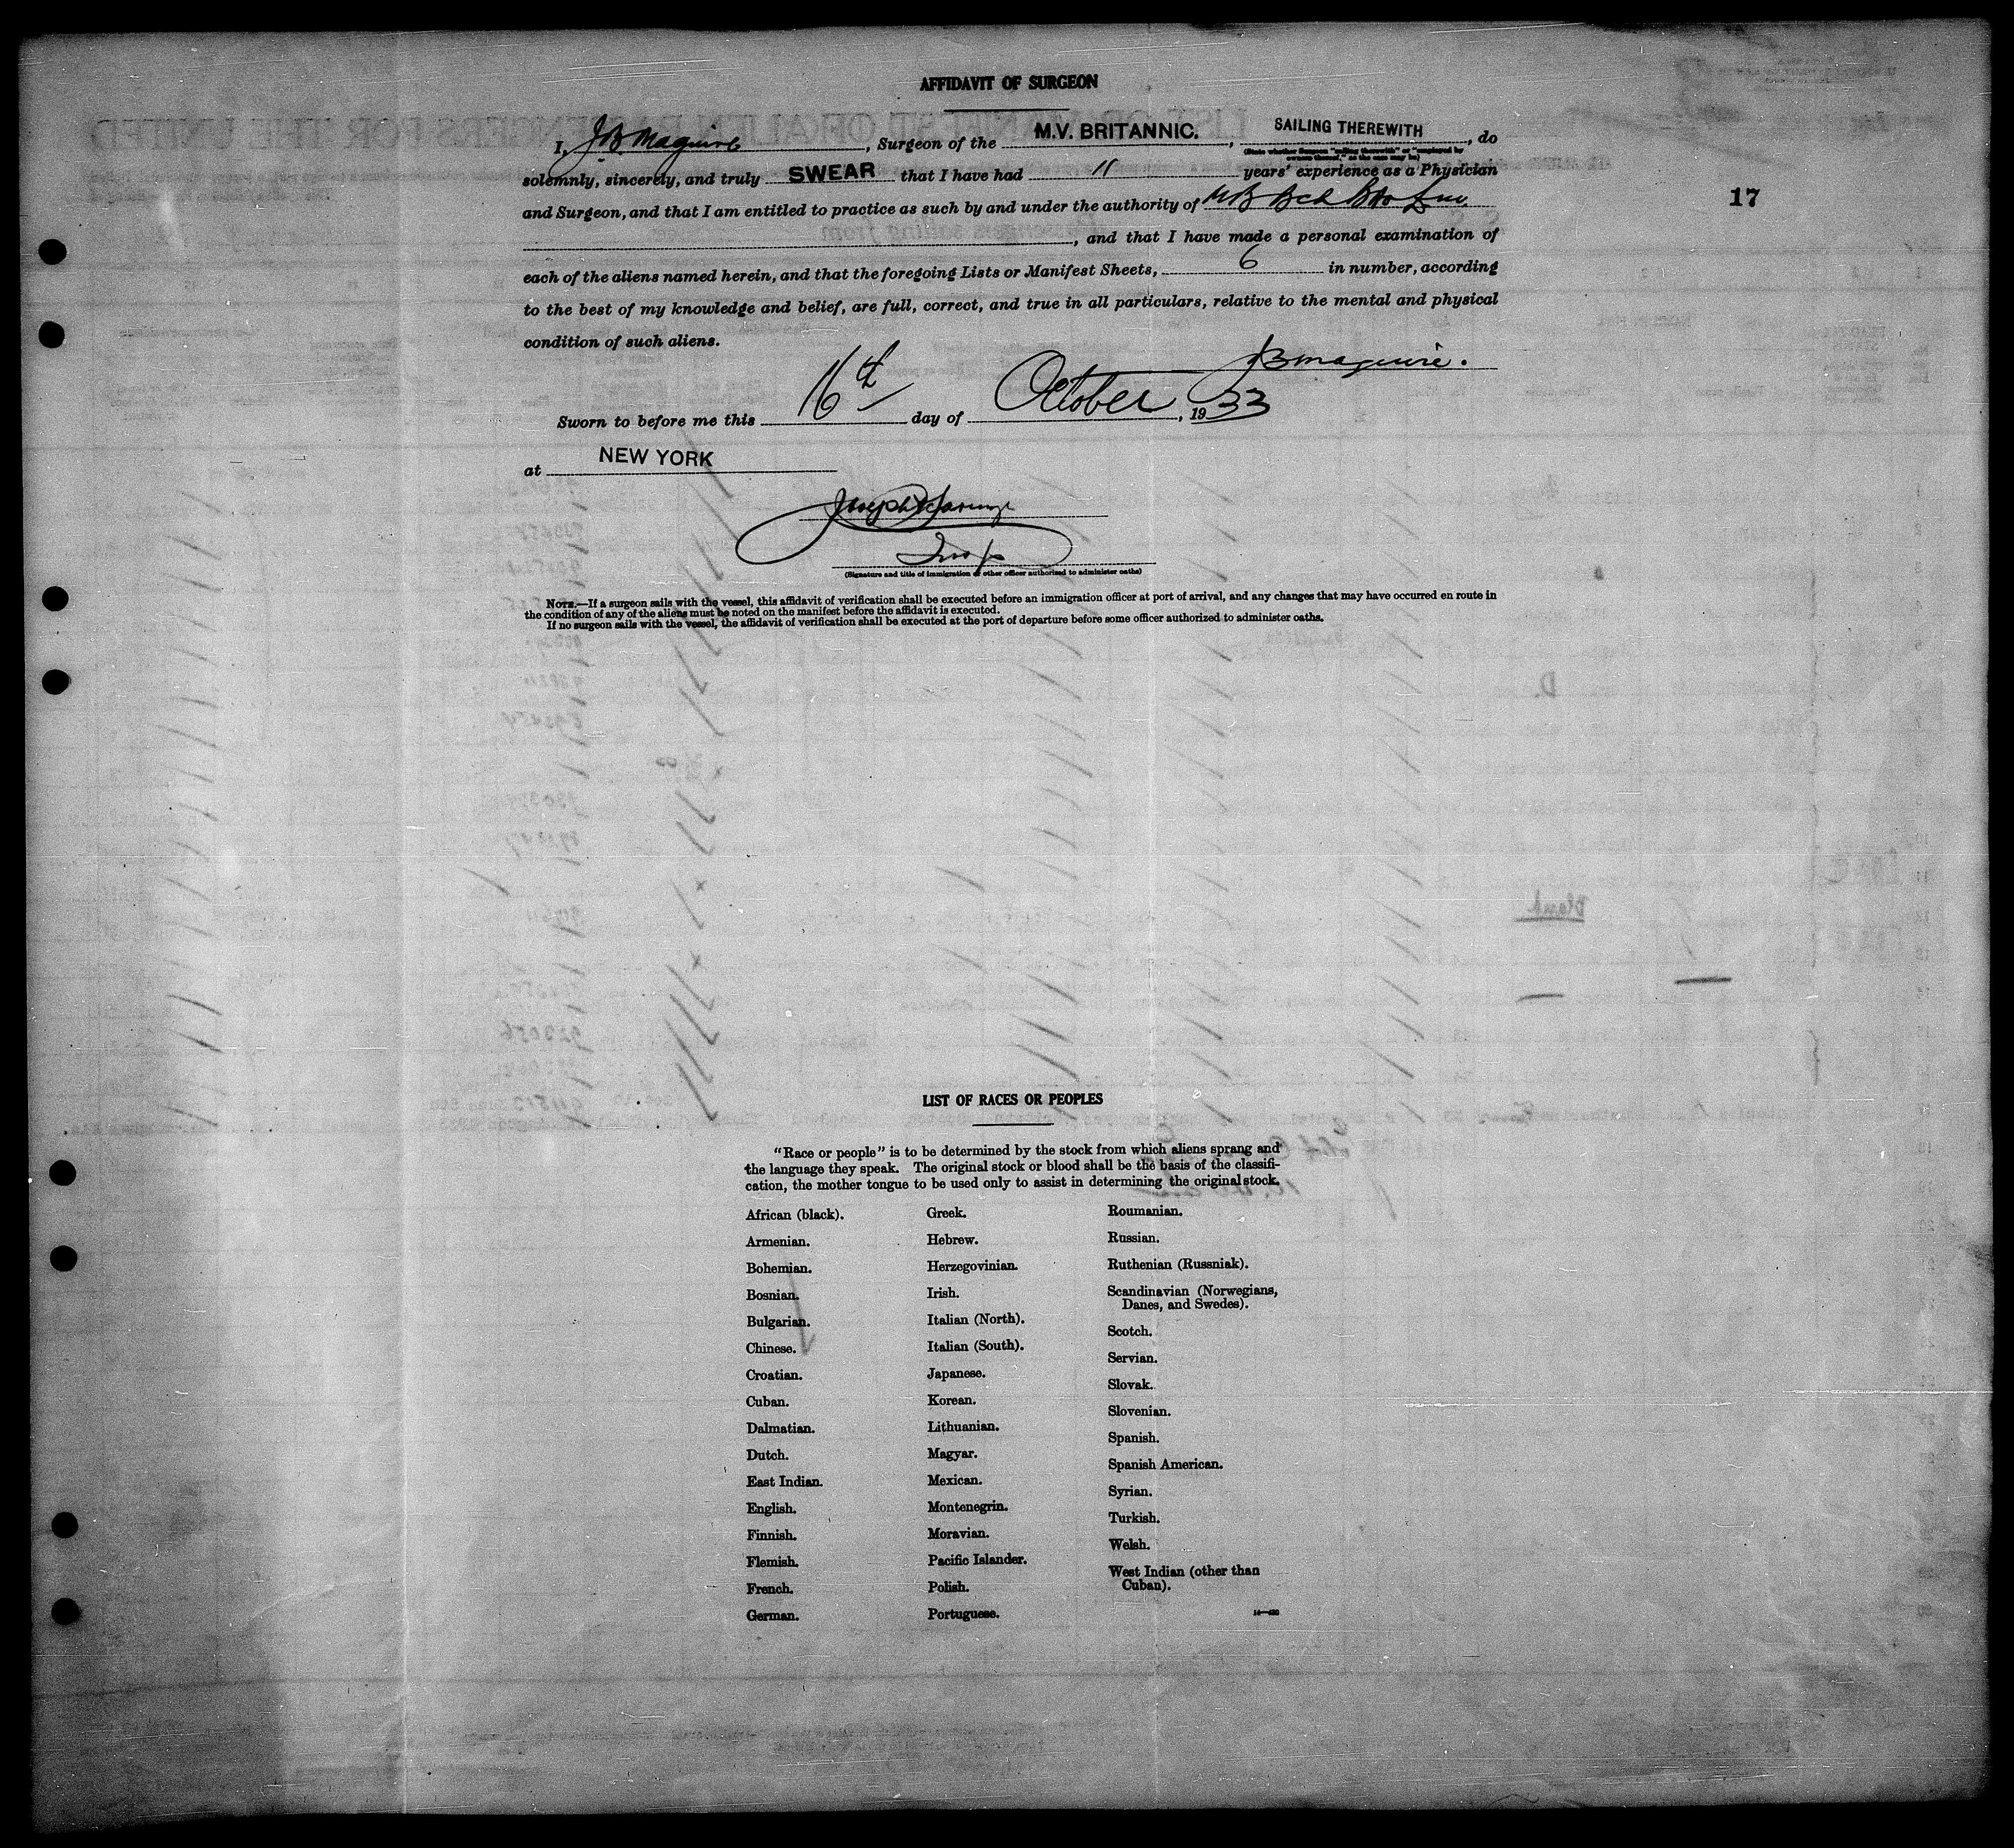 AFFIDAVIT OF SURGEON
I, J.B. Maguire, Surgeon of the M.V. BRITANNIC., SAILING THEREWITH, do
(State whether Surgeon "sailing therewith" or "employed by
owners thereof," as the case may be)
solemnly, sincerely, and truly SWEAR that I have had 11 years' experience as a Physician
17
and Surgeon, and that I am entitled to practice as such by and under the authority of MB Bch BAO
, and that I have made a personal examination of
each of the aliens named herein, and that the foregoing Lists or Manifest Sheets, 6 in number, according
to the best of my knowledge and belief, are full, correct, and true in all particulars, relative to the mental and physical
condition of such aliens.
JB Maguire.
Sworn to before me this 16th day of October, 1933
at NEW YORK
Joseph
Insp
(Signature and title of immigration or other officer authorized to administer oaths)
NOTE.—If a surgeon sails with the vessel, this affidavit of verification shall be executed before an immigration officer at port of arrival, and any changes that may have occurred en route in
the condition of any of the aliens must be noted on the manifest before the affidavit is executed.
If no surgeon sails with the vessel, the affidavit of verification shall be executed at the port of departure before some officer authorized to administer oaths.
LIST OF RACES OR PEOPLES
"Race or people" is to be determined by the stock from which aliens sprang and
the language they speak. The original stock or blood shall be the basis of the classifi-
cation, the mother tongue to be used only to assist in determining the original stock.
African (black).
Armenian.
Bohemian.
Bosnian.
Bulgarian.
Chinese.
Croatian.
Cuban.
Dalmatian.
Dutch.
East Indian.
English.
Finnish.
Flemish.
French.
German.
Greek.
Hebrew.
Herzegovinian.
Irish.
Italian (North).
Italian (South).
Japanese.
Korean.
Lithuanian.
Magyar.
Mexican.
Montenegrin.
Moravian.
Pacific Islander.
Polish.
Portuguese.
Roumanian.
Russian.
Ruthenian (Russniak).
Scandinavian (Norwegians,
Danes, and Swedes).
Scotch.
Servian.
Slovak.
Slovenian.
Spanish.
Spanish American.
Syrian.
Turkish.
Welsh.
West Indian (other than
Cuban).